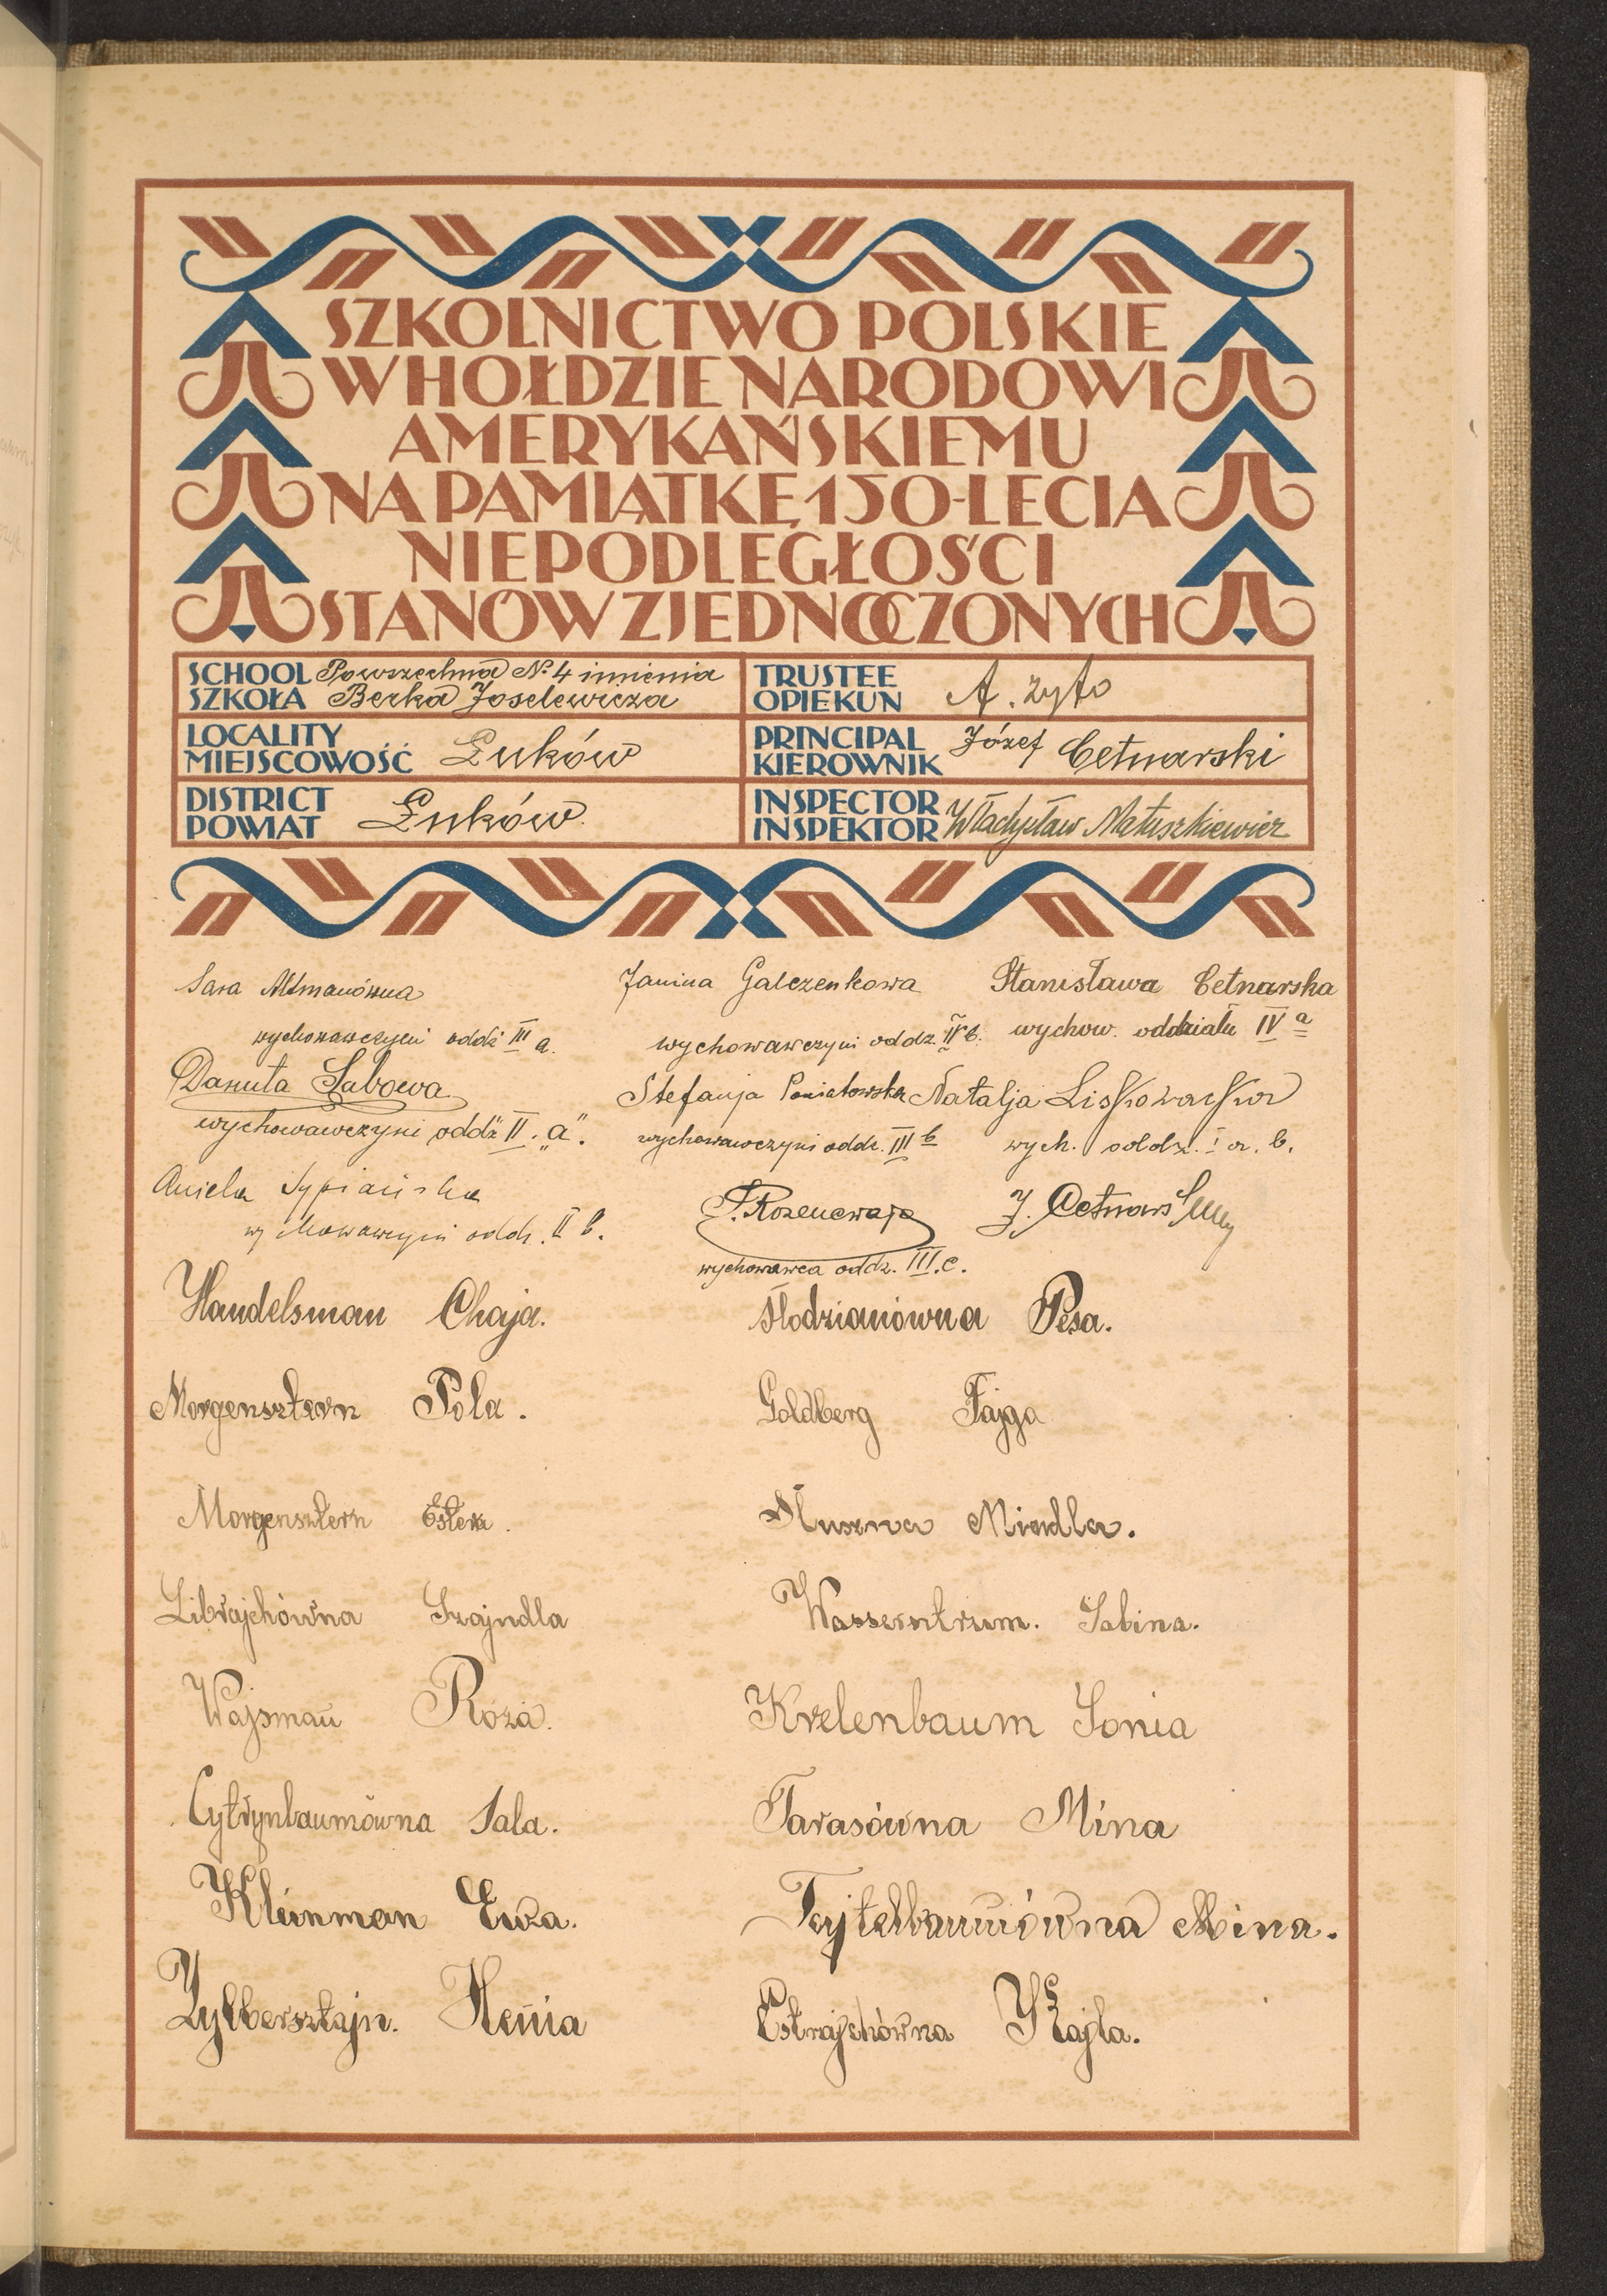 SZKOLNICTWO POLSKIE
W HOŁDZIE NARODOWI
AMERYKAŃSKIEMU
NA PAMIĄTKĘ 150-LECIA
NIEPODLEGŁOŚCI
STANÓW ZJEDNOCZONYCH
SCHOOL Powszechna No 4 imienia
SZKOŁA Berka Joselewicza
TRUSTEE
OPIEKUN A. Żyto
LOCALITY
MIEJSCOWOŚĆ Łuków
PRINCIPAL
KIEROWNIK Józef Cetnarski
DISTRICT
POWIAT Łuków
INSPECTOR
INSPEKTOR Władysław Matuszkiewicz
Sara Altmanówna
wychowawczyni oddz III a.
Janina Galczenkowa
wychowawczyni oddz. IV b.
Stanisława Cetnarska
wychow. oddziału IV a
Danuta Łabowa
wychowawczyni oddz II. "a".
Stefanja Poniatowska
wychowawczyni oddz. III b
Natalja Liskowacka
wych. oddz. I a. b.
Aniela Sypiańska
wychowawczyni oddz. II b.
wychowawca oddz. III. c.
J. Cetnarski
Handelsman Chaja.
Młodzianówna Pesa.
Morgensztern Pola.
Goldberg Fajga
Morgensztern Estera.
Mindla.
Librajchówna Szajndla
Wassersztrum. Sabina.
Wajsman Róża.
Krelenbaum Sonia
Cytrynbaumówna Sala.
Tarasówna Mina
Kleinman Ewa.
Tejtelbaumówna Mina.
Zylbersztajn. Henia
Estrajchówna Kajla.